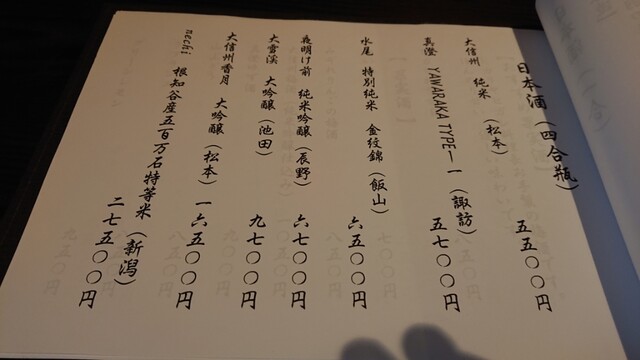 日本酒(四合瓶)
大信州 純米 (松本)
五五〇〇円
真澄 YAWARAKA TYPE―1 (諏訪)
五七〇〇円
水尾 特別純米 金紋錦(飯山)
六五〇〇円
夜明け前 純米吟醸(辰野)
六七〇〇円
大雪渓 大吟醸(池田)
九七〇〇円
大信州香月 大吟醸(松本)
一六五〇〇円
nechi 根知谷産五百万石特等米(新潟)
二七五〇〇円